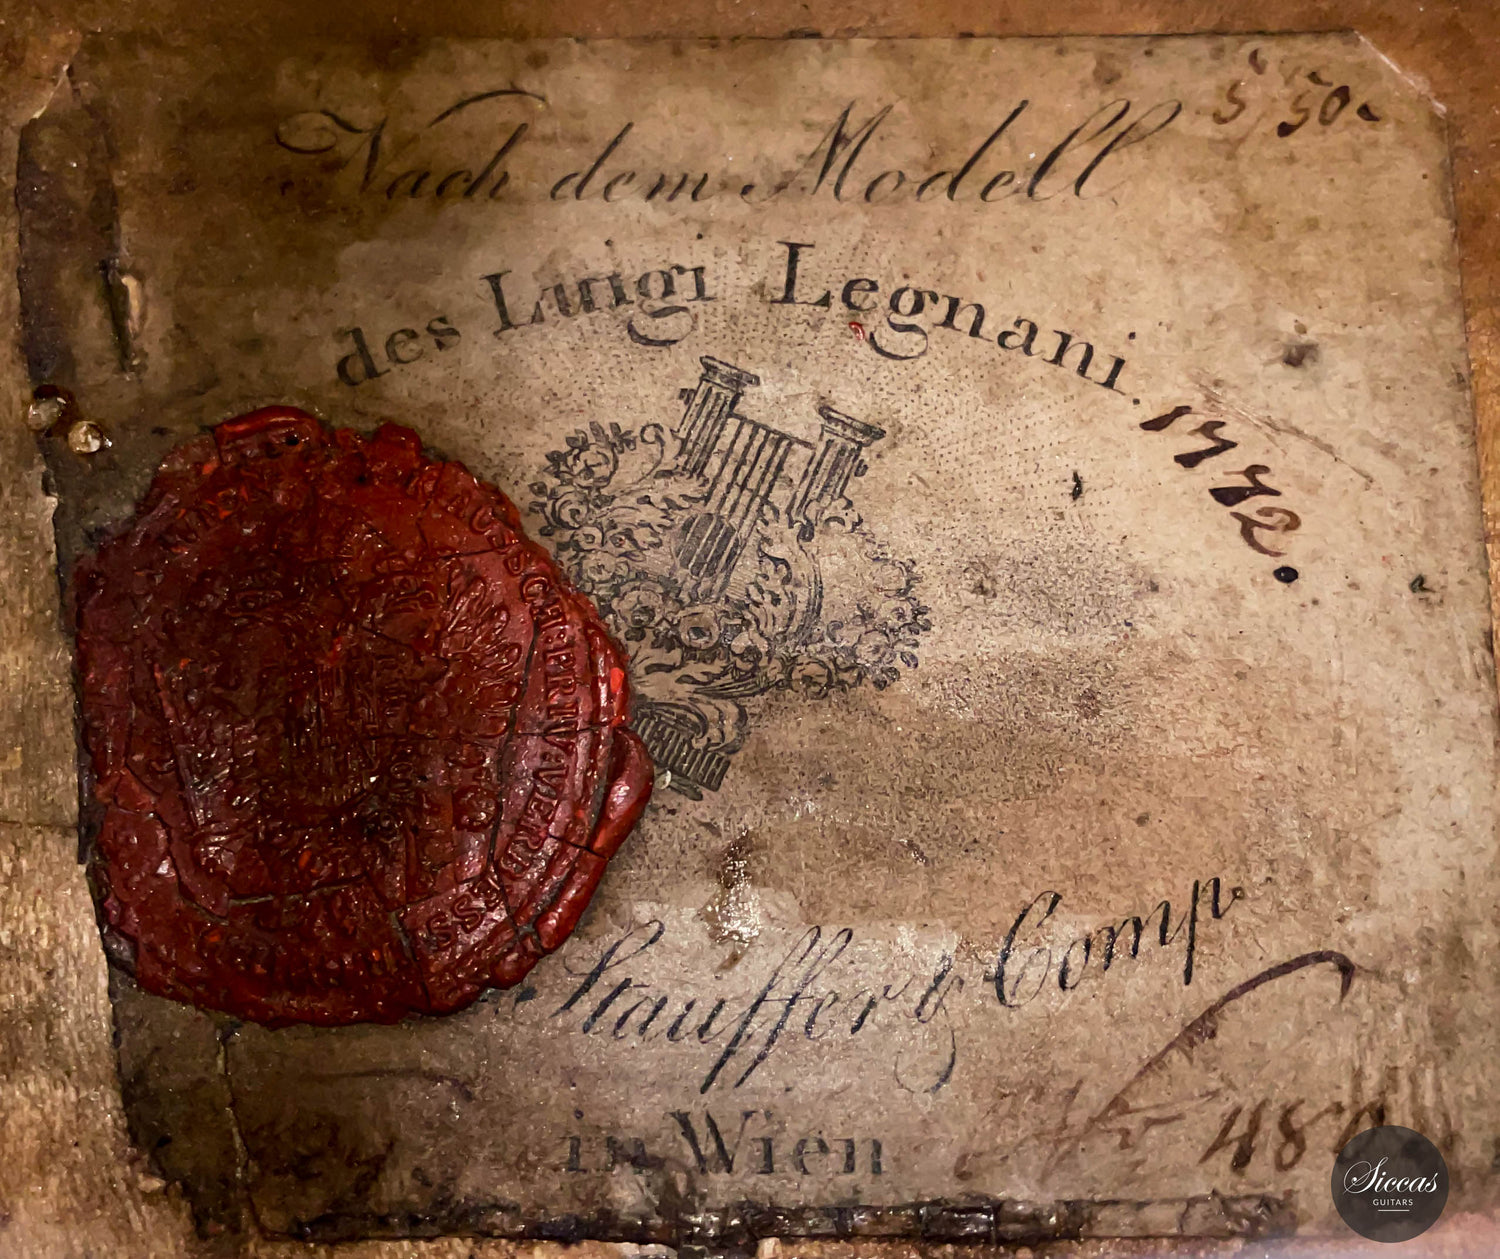 5 50
Nach dem Modell
des Luigi Legnani.
1772.
AUSSCH: PRIV: VERB
ESS
Stauffer & Comp.
in Wien
48
Siccas
GUITARS